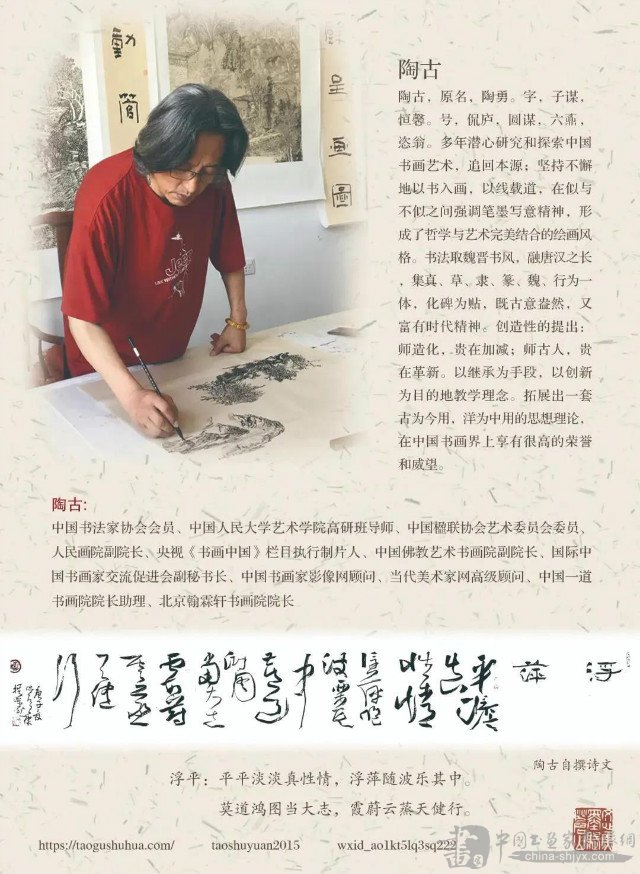 陶古
陶古，原名，陶勇。字，子谋，
恒馨。号，侃庐，圆谋，六乖，
恣翁。多年潜心研究和探索中国
书画艺术，追回本源；坚持不懈
地以书入画，以线载道，在似与
不似之间强调笔墨写意精神，形
成了哲学与艺术完美结合的绘画风
格。书法取魏晋书风，融唐汉之长
，集真、草、隶、篆、魏、行为一
体，化碑为贴，既古意盎然，又
富有时代精神。创造性的提出：
师造化，贵在加减；师古人，贵
在革新。以继承为手段，以创新
为目的地教学理念。拓展出一套
古为今用，洋为中用的思想理论，
在中国书画界上享有很高的荣誉
和威望。
陶古：
中国书法家协会会员、中国人民大学艺术学院高研班导师、中国楹联协会艺术委员会委员、
人民画院副院长、央视《书画中国》栏目执行制片人、中国佛教艺术书画院副院长、国际中
国书画家交流促进会副秘书长、中国书画家影像网顾问、当代美术家网高级顾问、中国一道
书画院院长助理、北京翰霖轩书画院院长
浮萍
陶古自撰诗文
浮平：平平淡淡真性情，浮萍随波乐其中。
莫道鸿图当大志，霞蔚云蒸天健行。
https://taogushuhua.com/
taoshuyuan2015
wxid_ao1kt5lq3sq222
china-shjyx.com